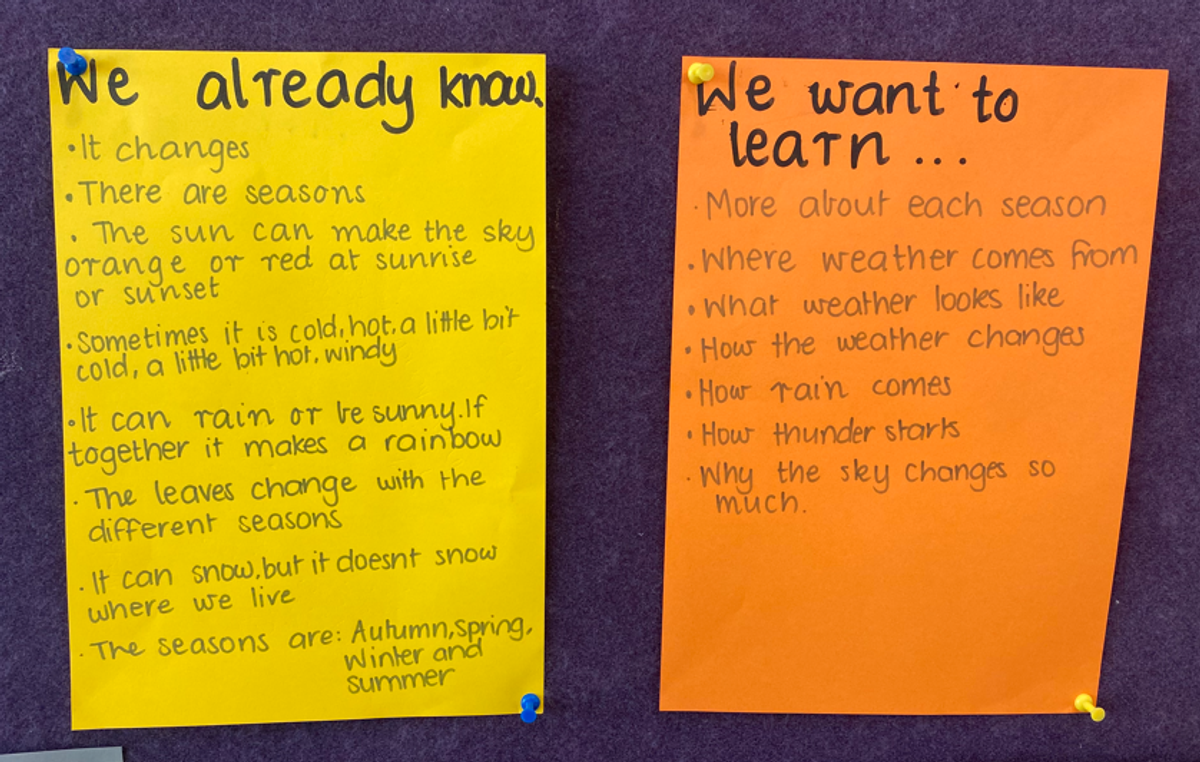 We already know.
•It changes
•There are seasons
• The sun can make the sky
orange or red at sunrise
or sunset
•Sometimes it is cold, hot, a little bit
cold, a little bit hot, windy
•It can rain or be sunny. If
together it makes a rainbow
•The leaves change with the
different seasons
•It can snow, but it doesnt snow
where we live
•The seasons are: Autumn, spring,
Winter and
summer
We want to
learn ...
•More about each season
•Where weather comes from
•What weather looks like
•How the weather changes
•How rain comes
•How thunder starts
•Why the sky changes so
much.